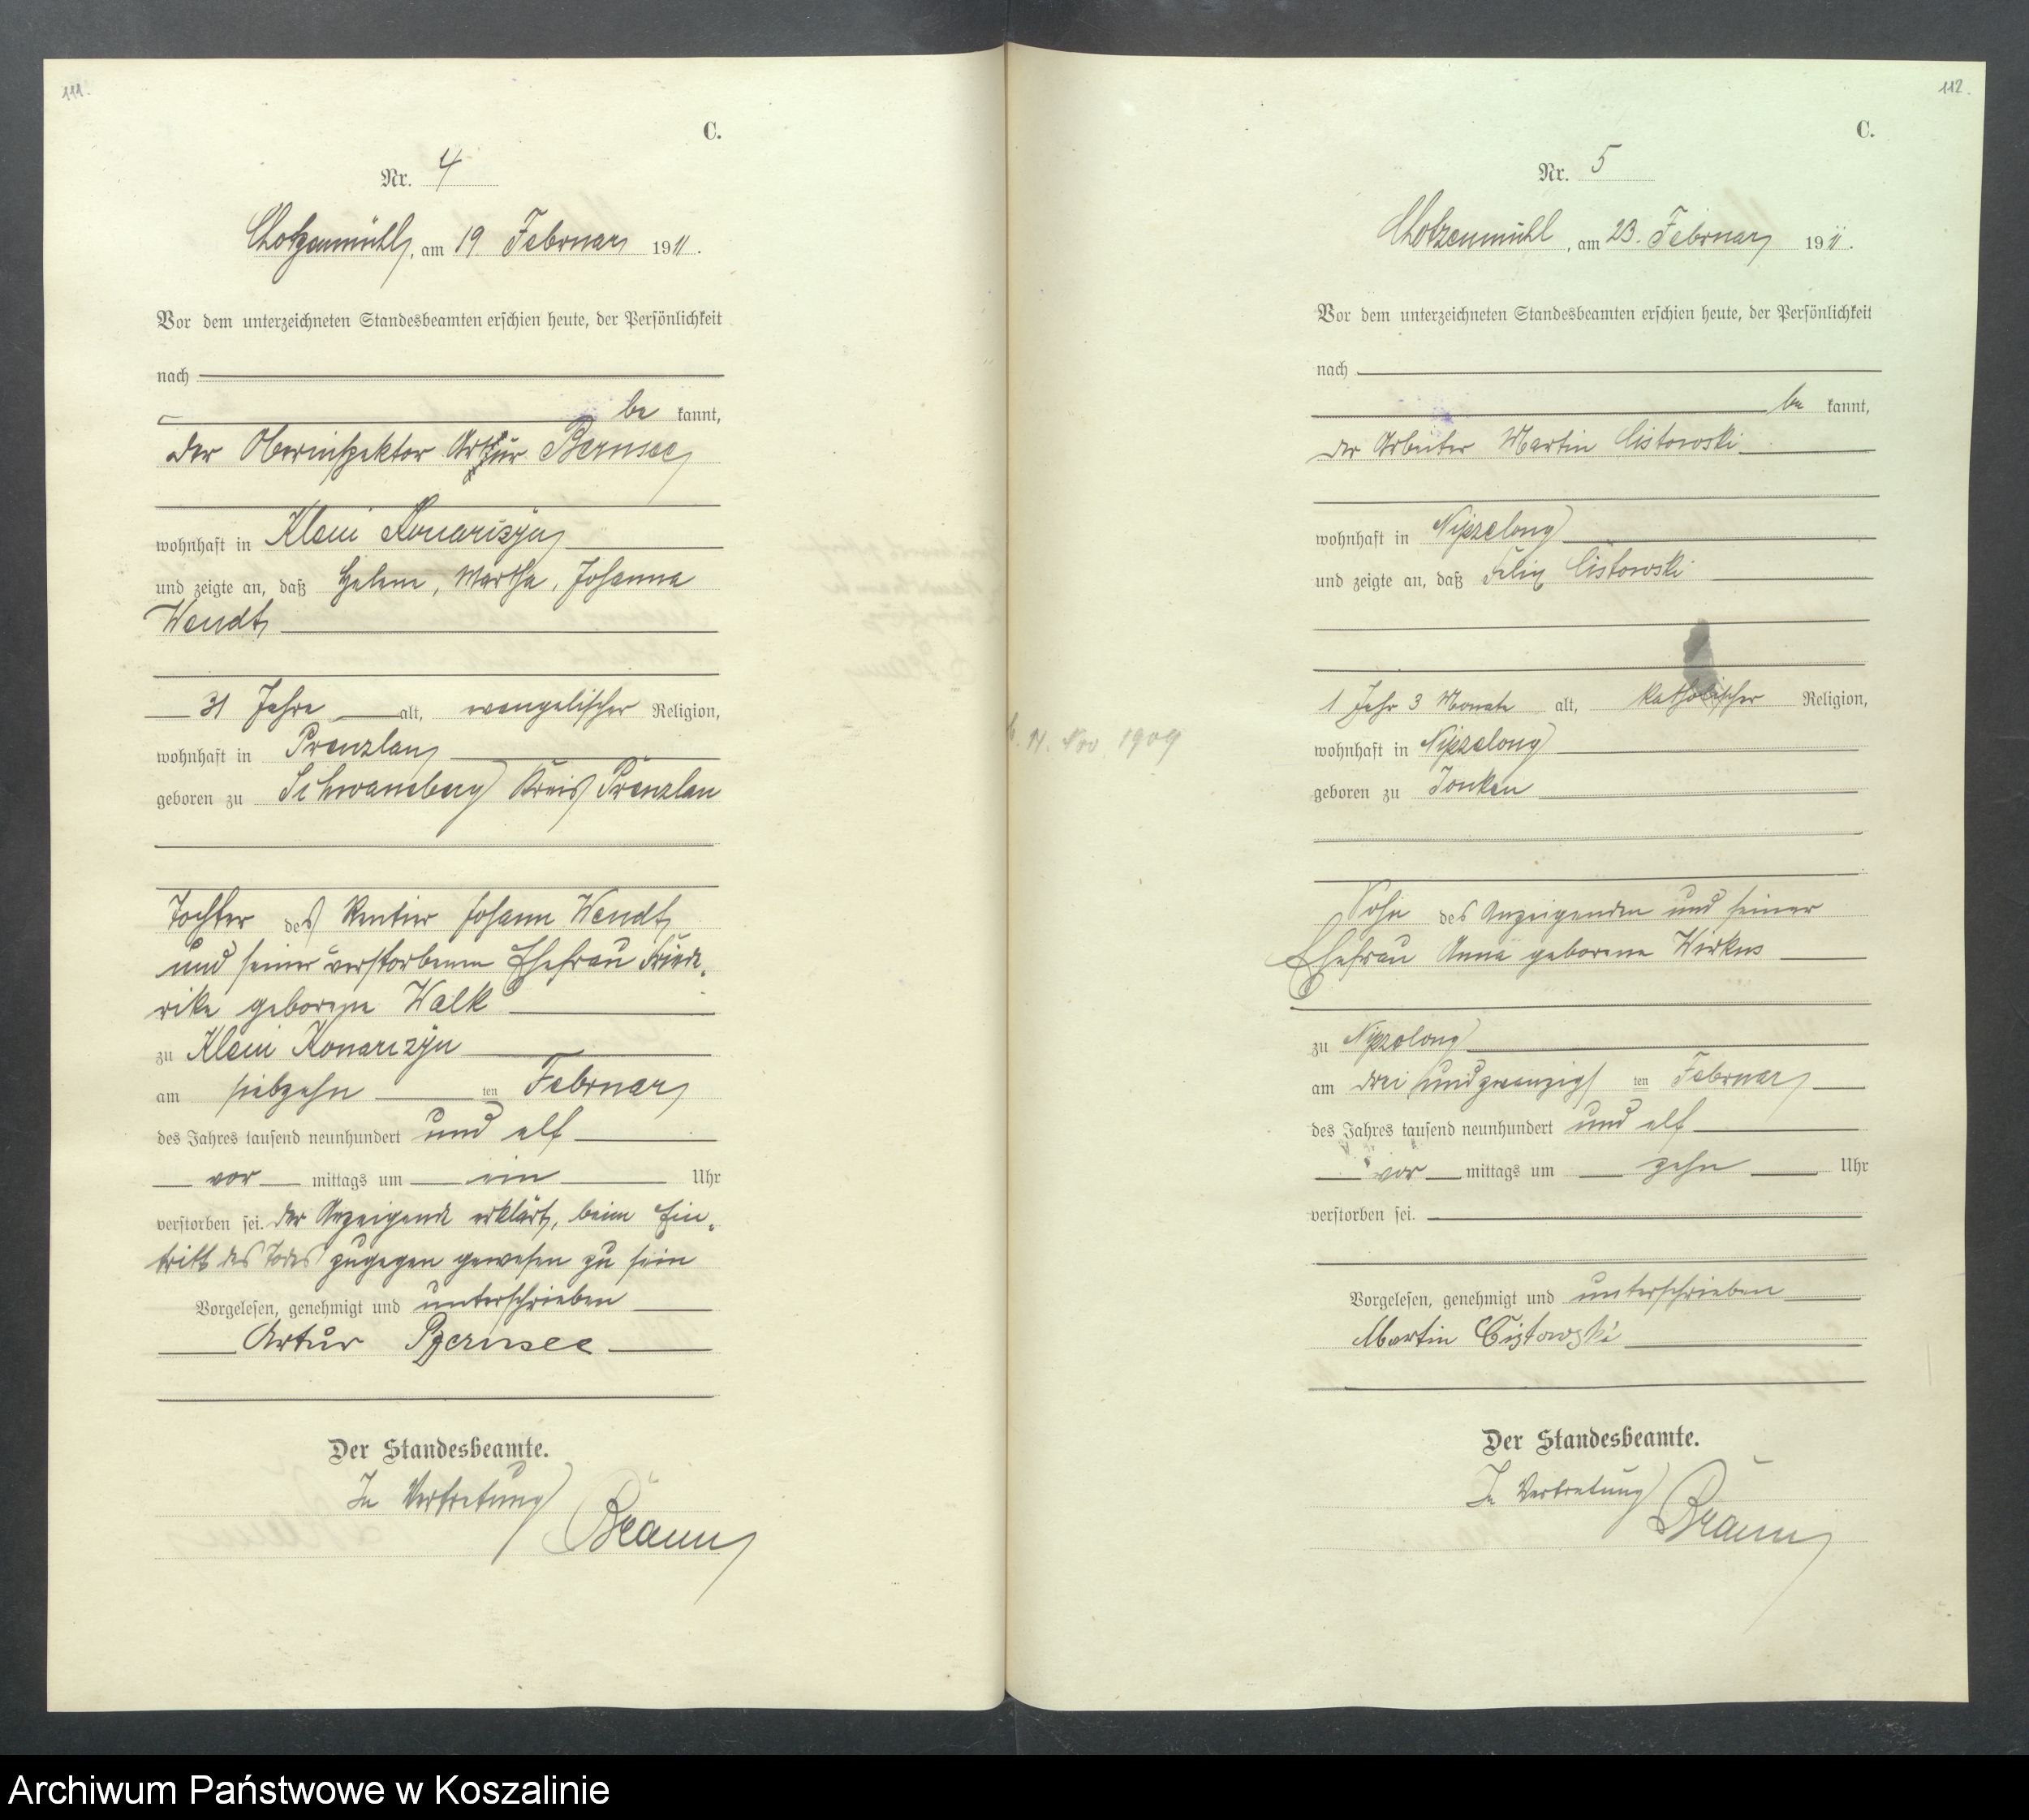 111.
C.
Nr. 4
Chotzenmühl, am 19. Februar 1911.
Vor dem unterzeichneten Standesbeamten erschien heute, der Persönlichkeit
nach
be kannt,
der Oberinspektor Artur Bernsee
wohnhaft in Klein Konarczyn
und zeigte an, daß Helene, Martha, Johanna
Wendt
31 Jahre alt, evangelischer Religion,
wohnhaft in Prenzlau
geboren zu Schwaneberg Kreis Prenzlau
Tochter des Rentier Johann Wendt
und seiner verstorbenen Ehefrau Friede-
rike geborene Walk
zu Klein Konarczyn
am siebzehn ten Februar
des Jahres tausend neunhundert und elf
vor mittags um ein Uhr
verstorben sei. Der Anzeigende erklärt, beim Ein-
tritt des Todes zugegen gewesen zu sein
Vorgelesen, genehmigt und unterschrieben
Artur Bernsee
Der Standesbeamte.
In Vertretung
Braun
112.
C.
Nr. 5
Chotzenmühl, am 23. Februar 1911.
Vor dem unterzeichneten Standesbeamten erschien heute, der Persönlichkeit
nach
be kannt,
der Arbeiter Martin Cistowski
wohnhaft in Nipzelong
und zeigte an, daß Felix Cistowski
1 Jahr 3 Monate alt, katholischer Religion,
14. Nov. 1909
wohnhaft in Nipzelong
geboren zu Jonken
Sohn des Anzeigenden und seiner
Ehefrau Anna geborene Wirkus
zu Nipzelong
am drei und zwanzigs ten Februar
des Jahres tausend neunhundert und elf
vor mittags um zehn Uhr
verstorben sei.
Vorgelesen, genehmigt und unterschrieben
Martin Cistowski
Der Standesbeamte.
In Vertretung
Braun
Archiwum Państwowe w Koszalinie